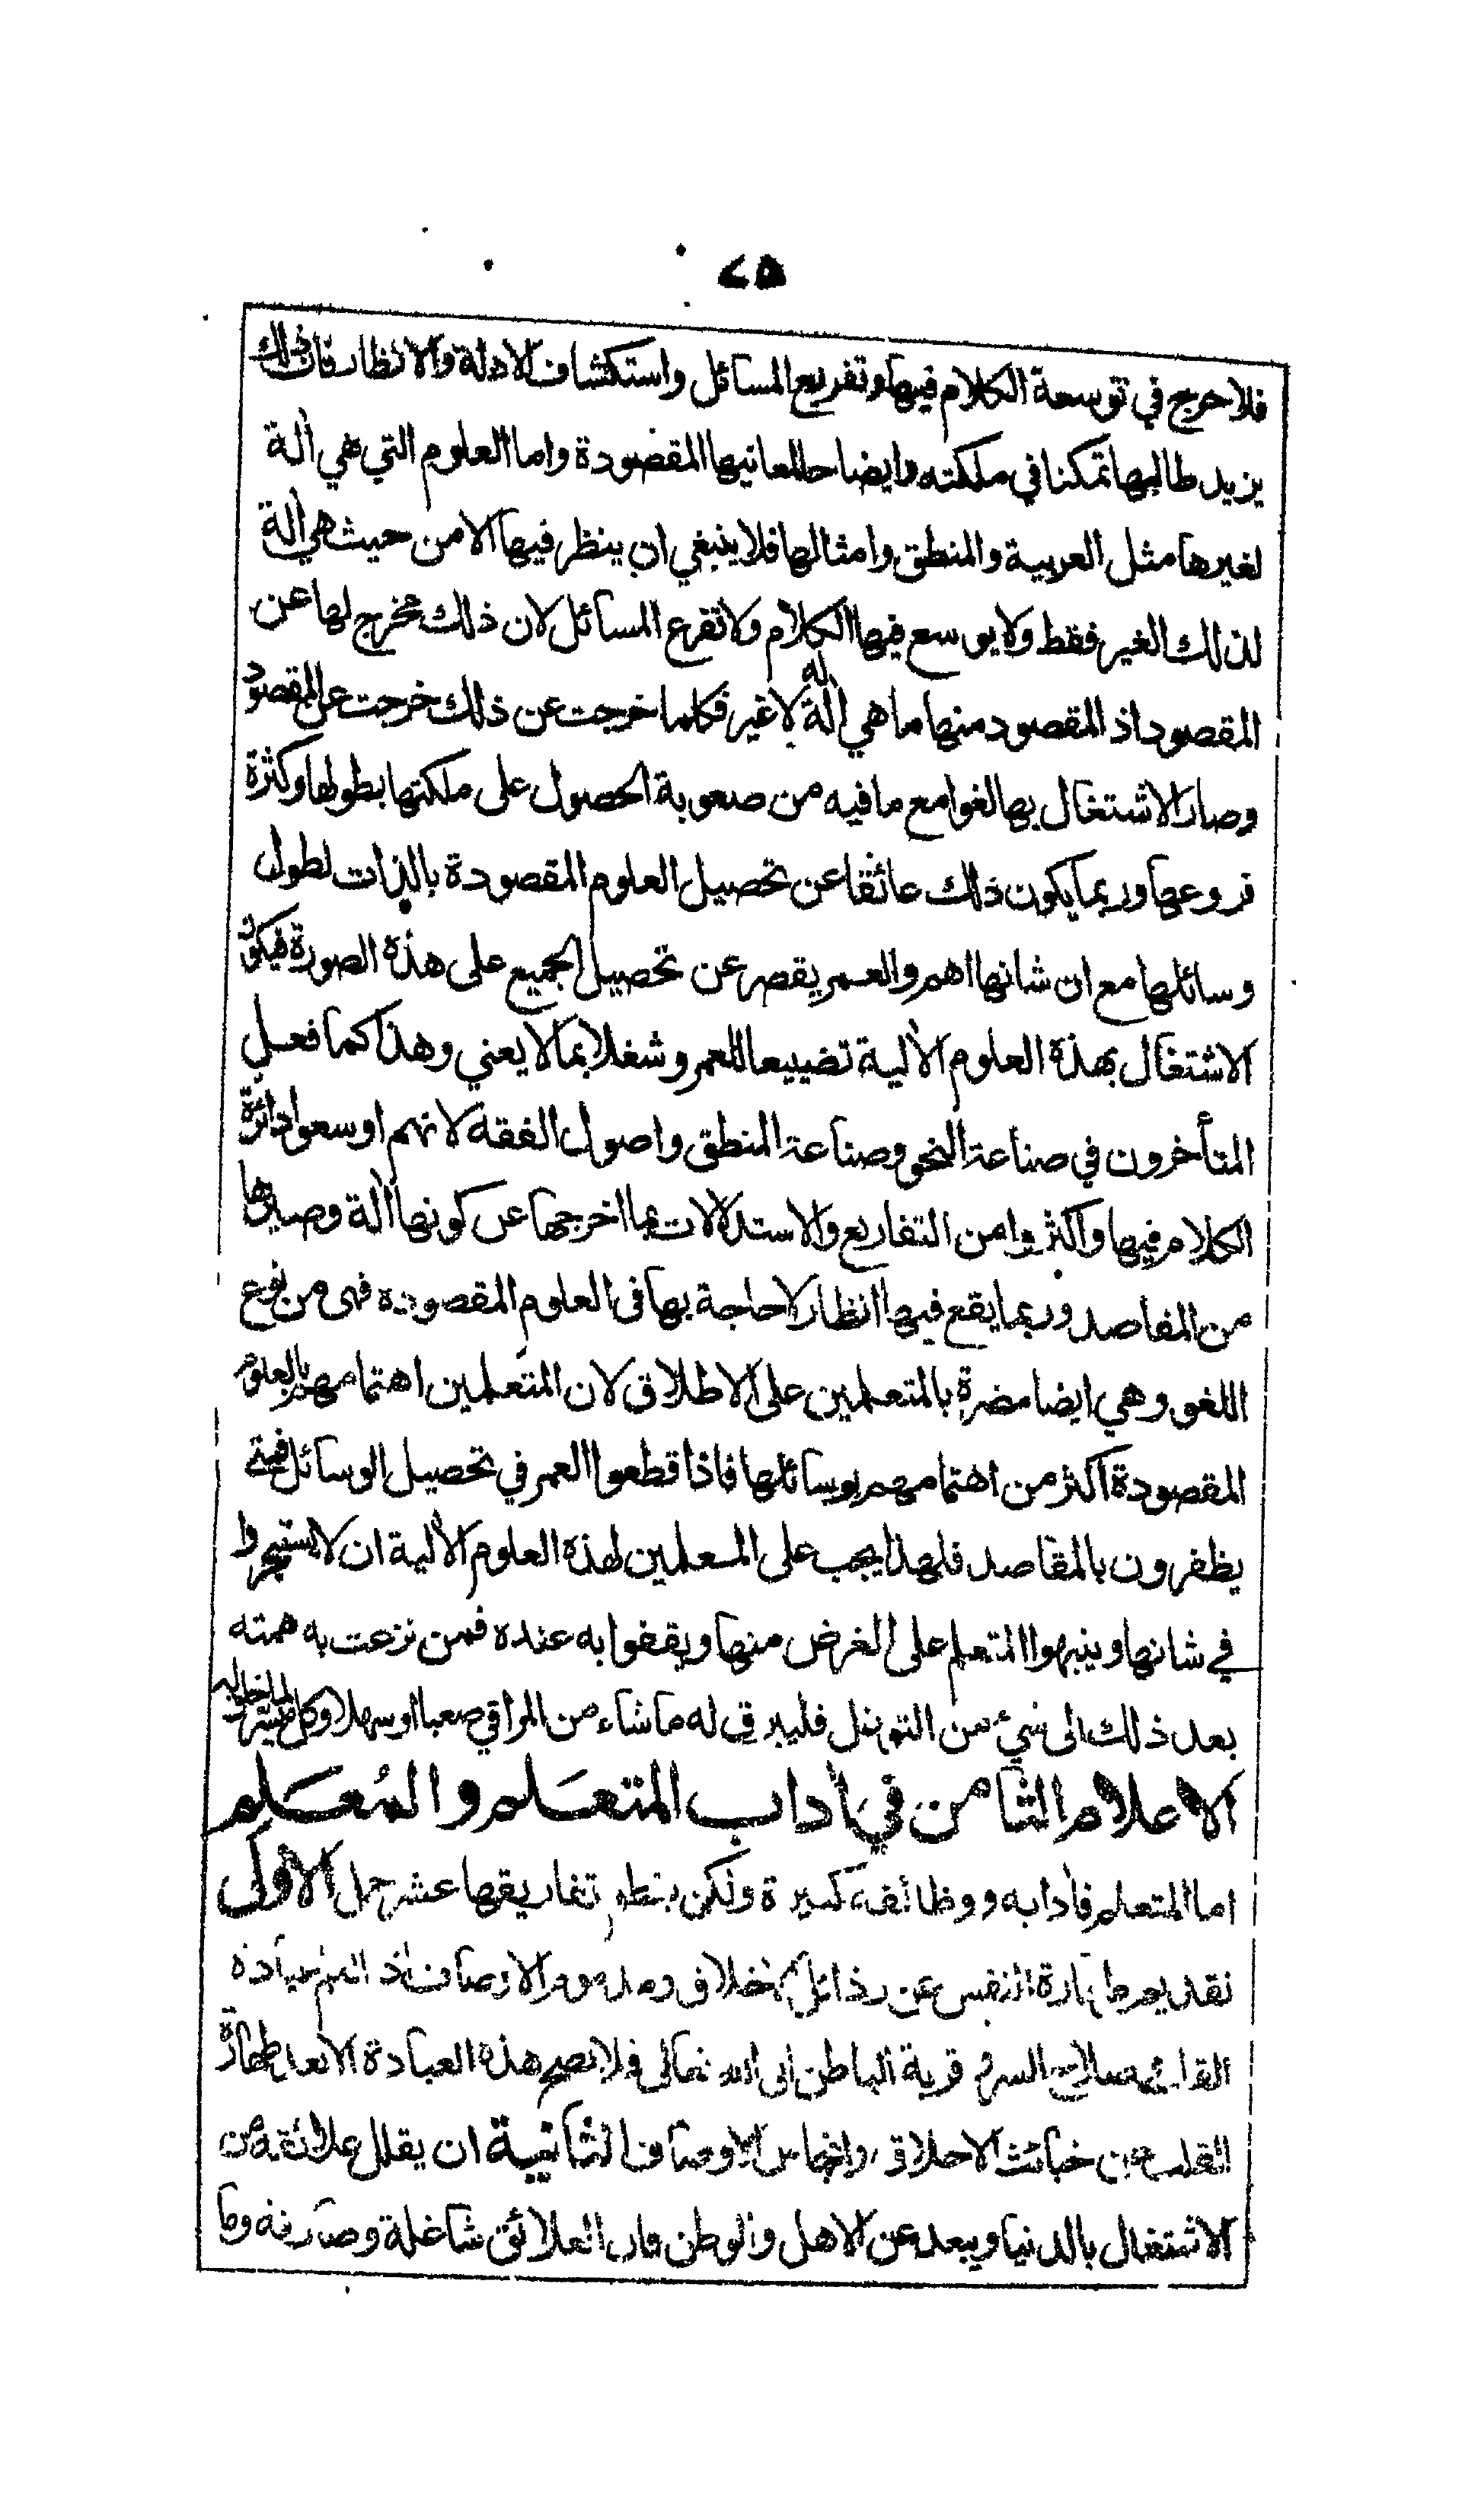 ٧٥
فلا حرج في توسعة الكلام فيها وتفريع المسائل واستكشاف الادلة والانظار فان ذلك
يزيد طالبها تمكنا في ملكته وايضاحا لمعانيها المقصودة واما العلوم التي هي آلة
لغيرها مثل العربية والمنطق وامثالها فلا ينبغي ان ينظر فيها الا من حيث هي آلة
لذلك الغير فقط ولا يوسع فيها الكلام ولا تفرع المسائل لان ذلك مخرج لها عن
المقصود اذ المقصود منها ما هي آلة له لا غير فكلما خرجت عن ذلك خرجت عن المقصود
وصار الاشتغال بها لغوا مع ما فيه من صعوبة الحصول على ملكتها بطولها وكثرة
فروعها وربما يكون ذلك عائقا عن تحصيل العلوم المقصودة بالذات لطول
وسائلها مع ان شانها اهم والعمر يقصر عن تحصيل الجميع على هذه الصورة فيكون
الاشتغال بهذه العلوم الآلية تضييعا للعمر وشغلا بما لا يعني وهذا كما فعل
المتأخرون في صناعة النحو وصناعة المنطق واصول الفقه لانهم اوسعوا دائرة
الكلام فيها واكثروا من التفاريع والاستدلالات بما اخرجها عن كونها آلة وصيرها
من المقاصد وربما يقع فيها انظار لا حاجة بها في العلوم المقصودة فهى من نوع
اللغو وهي ايضا مضرة بالمتعلمين على الاطلاق لان المتعلمين اهتمامهم بالعلوم
المقصودة اكثر من اهتمامهم بوسائلها فاذا قطعوا العمر في تحصيل الوسائل فمتى
يظفرون بالمقاصد فلهذا يجب على المعلمين لهذه العلوم الآلية ان لا يستبحروا
في شانها وينبهوا المتعلم على الغرض منها ويقفوا به عنده فمن نزعت به همته
بعد ذلك الى شيء من التوغل فليرق له ما شاء من المراقي صعبا او سهلا وكل ميسر لما خلق له
الاعلام الثامن في آداب المتعلم والمعلم
اما المتعلم فآدابه ووظائفه كثيرة ولكن ينظم تفاريقها عشر جمل الاولى
تقديم طهارة النفس عن رذائل الاخلاق ومذموم الاوصاف اذ العلم عبادة
القلب وصلاة السر و قربة الباطن الى الله تعالى فلا تصح هذه العبادة الا بعد طهارة
القلب عن خبائث الاخلاق وانجاس الاوصاف الثانية ان يقلل علائقه من
الاشتغال بالدنيا ويبعد عن الاهل والوطن فان العلائق شاغلة وصارفة وما